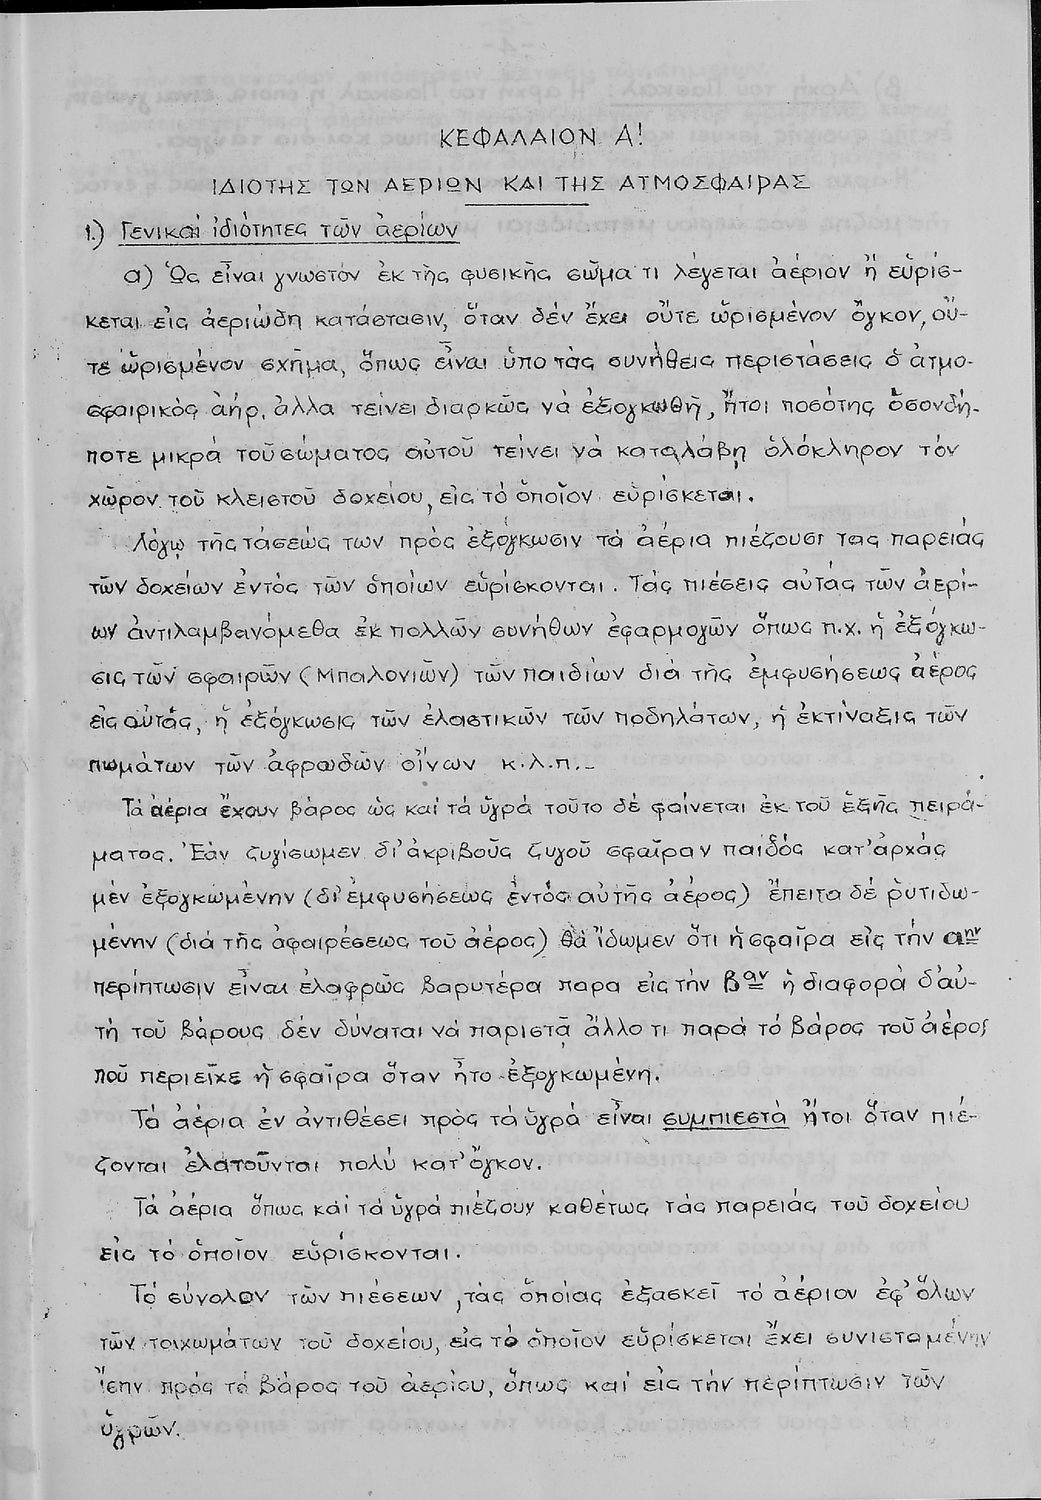 ΚΕΦΑΛΑΙΟΝ Α!
ΙΔΙΟΤΗΣ ΤΩΝ ΑΕΡΙΩΝ ΚΑΙ ΤΗΣ ΑΤΜΟΣΦΑΙΡΑΣ
1.) Γενικαί ἰδιότητες τῶν ἀερίων
α) Ὡς εἶναι γνωστόν ἐκ τῆς φυσικῆς σῶμα τι λέγεται ἀέριον ἤ εὑρίσ-
κεται εἰς ἀεριώδη κατάστασιν, ὅταν δέν ἔχει οὔτε ὡρισμένον ὄγκον, οὔ-
τε ὡρισμένον σχῆμα, ὅπως εἶναι ὑπο τάς συνήθεις περιστάσεις ὁ ἀτμο-
σφαιρικός ἀήρ, ἀλλα τείνει διαρκῶς νά ἐξογκωθῆ, ἤτοι ποσότης ὁσονδή-
ποτε μικρά τοῦ σώματος αὐτοῦ τείνει νά καταλάβη ὁλόκληρον τόν
χῶρον τοῦ κλειστοῦ δοχείου, εἰς τό ὁποῖον εὑρίσκεται.
Λόγῳ τῆς τάσεώς των πρός ἐξόγκωσιν τά ἀέρια πιέζουσι τας παρειάς
τῶν δοχείων ἐντός τῶν ὁποίων εὑρίσκονται. Τάς πιέσεις αὐτάς τῶν ἀερί-
ων ἀντιλαμβανόμεθα ἐκ πολλῶν συνήθων ἐφαρμογῶν ὅπως π.χ. ἡ ἐξόγκω-
σις τῶν σφαιρῶν (Μπαλονιῶν) τῶν παιδίων διά τῆς ἐμφυσήσεως ἀέρος
εἰς αὐτάς, ἡ ἐξόγκωσις τῶν ἐλαστικῶν τῶν ποδηλάτων, ἡ ἐκτίναξις τῶν
πωμάτων τῶν ἀφρωδῶν οἴνων κ.λ.π.-
Τά ἀέρια ἔχουν βάρος ὡς καί τά ὑγρά τοῦτο δέ φαίνεται ἐκ τοῦ ἑξῆς πειρά-
ματος. Ἐάν ζυγίσωμεν δι' ἀκριβοῦς ζυγοῦ σφαῖραν παιδός κατ' ἀρχάς
μέν ἐξογκωμένην (δι' ἐμφυσήσεως ἐντός αὐτῆς ἀέρος) ἔπειτα δέ ρυτιδω-
μένην (διά τῆς ἀφαιρέσεως τοῦ ἀέρος) θά ἴδωμεν ὅτι ἡ σφαῖρα εἰς τήν αην
περίπτωσιν εἶναι ἐλαφρῶς βαρυτέρα παρα εἰς τήν βαν ἡ διαφορά δ' αὐ-
τή τοῦ βάρους δέν δύναται νά παριστᾷ ἄλλο τι παρά τό βάρος τοῦ ἀέρος
πού περιεῖχε ἡ σφαῖρα ὅταν ἦτο ἐξογκωμένη.
Τά ἀέρια ἐν ἀντιθέσει πρός τά ὑγρά εἶναι συμπιεστά ἤτοι ὅταν πιέ-
ζονται ἐλατοῦνται πολύ κατ' ὄγκον.
Τά ἀέρια ὅπως καί τά ὑγρά πιέζουν καθέτως τάς παρειάς τοῦ δοχείου
εἰς τό ὁποῖον εὑρίσκονται.
Τό σύνολον τῶν πιέσεων, τάς ὁποίας ἐξασκεῖ τό ἀέριον ἐφ' ὅλων
τῶν τοιχωμάτων τοῦ δοχείου, εἰς τό ὁποῖον εὑρίσκεται ἔχει συνισταμένην
ἴσην πρός τό βάρος τοῦ ἀερίου, ὅπως καί εἰς τήν περίπτωσιν τῶν
ὑγρῶν.